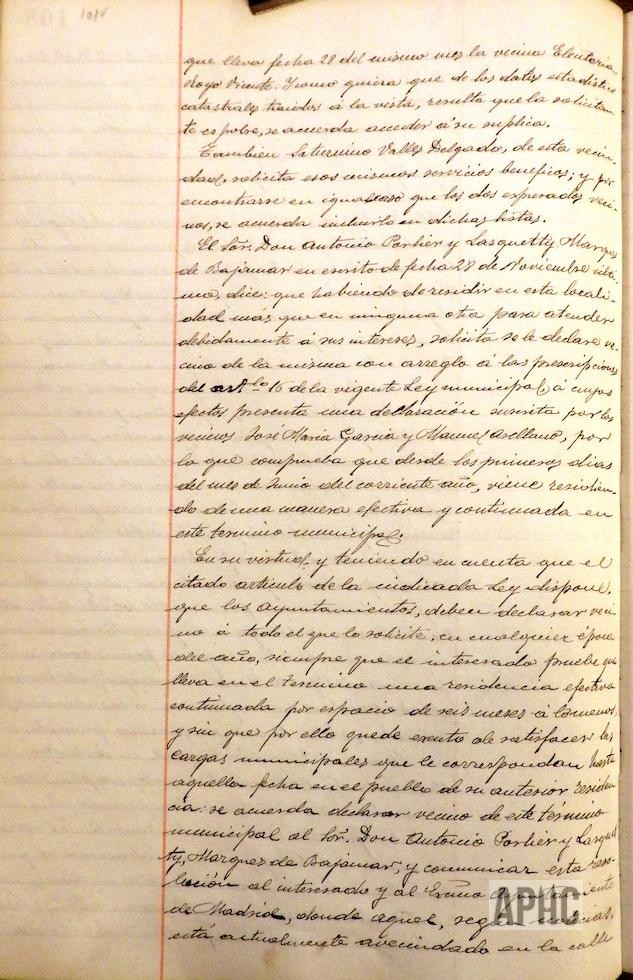 101v
que lleva fecha 28 del mismo mes la vecina Eleuteria
Royo Vicente. Y como quiera que de los datos estadistico
catastrales traidos á la vista, resulta que la solicitan-
te es pobre, se acuerda acceder á su suplica.
Tambien Saturnino Valles Delgado, de esta vecin-
dad, solicita esos mismos servicios beneficos; y por
encontrarse en igual caso que los dos esperados veci-
nos, se acuerda incluirlo en dichas listas.
El Sor. Don Antonio Porlier y Lasquetty Marques
de Bajamar en escrito de fecha 28 de Noviembre ulti-
mo, dice: que habiendo de residir en esta locali-
dad más que en ninguna otra para atender
debidamente á sus intereses, solicita se le declare ve-
cino de la misma con arreglo á las prescripciones
del artº 16 de la vigente Ley municipal, á cuyos
efectos presenta una declaración suscrita por los
vecinos José Maria Garcia y Manuel Arellano, por
la que comprueba que desde los primeros dias
del mes de Junio del corriente año, viene residien-
do de una manera efectiva y continuada en
este termino municipal.
En su virtud, y teniendo en cuenta que el
citado articulo de la indicada Ley dispone,
que los Ayuntamientos, deben declarar veci-
no á todo el que lo solicite, en cualquier época
del año, siempre que el interesado pruebe que
lleva en el termino una residencia efectiva
continuada por espacio de seis meses á lo menos,
y sin que por ello quede exento de satisfacer las
cargas municipales que le correspondan hasta
aquella fecha en el pueblo de su anterior residen-
cia: se acuerda declarar vecino de este término
municipal al Sor. Don Antonio Porlier y Lasquet-
ty, Marques de Bajamar, y comunicar esta reso-
lución al interesado y al Excmo Ayuntamiento
de Madrid, donde aquel, según noticias,
está actualmente avecindado en la calle
APHC